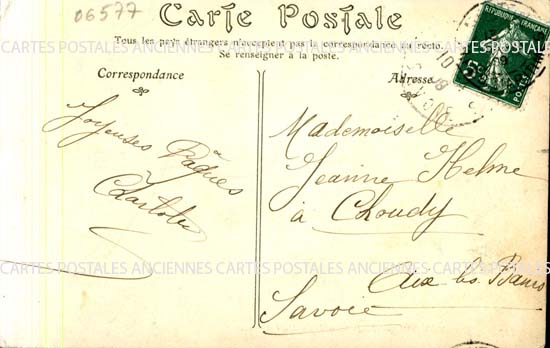 06577
Carte Postale
Tous les pays étrangers n'acceptent pas la correspondance au recto.
Se renseigner à la poste.
Correspondance
Adresse
Joyeuses Pâques
Mademoiselle
Jeanne Helme
à Choudy
Aix les Bains
Savoie
RÉPUBLIQUE FRANÇAISE
5
POSTES
CARTES POSTALES ANCIENNES CARTES POSTALES ANCIENNES CARTES POSTALES ANCIENNES
CARTES POSTALES ANCIENNES CARTES POSTALES ANCIENNES CARTES POSTALES ANCIENNES